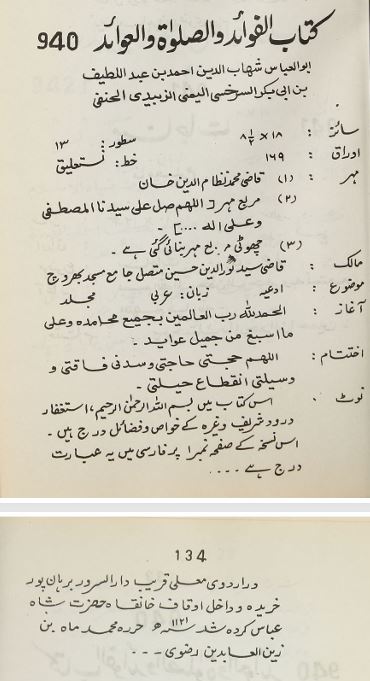 کتاب الفوائد والصلوٰة والعوائد 940
ابوالعباس شہاب الدین احمد بن عبد اللطیف
بن ابی بکر السرخسی الیمنی الزبیدی الحنفی
سائز : ۱۸ × ۸½ سطور : ۱۳
اوراق : ۱۶۹ خط : نستعلیق
مہر : (۱) قاضی محمد نظام الدین خان
(۲) مربع مہر [ اللهم صل علی سیدنا المصطفی
وعلی الہ .... ] -
(۳) چھوٹی مربع مہر بنائی گئی ہے -
مالک : قاضی سید نورالدین حسین متصل جامع مسجد بھروچ
موضوع : ادعیہ زبان : عربی مجلد
آغاز : الحمدللہ رب العالمین بجمیع محامدہ وعلی
ما اسبغ من جمیل عواید -
اختتام : اللهم حجتی حاجتی وسدنی فاقتی و
وسیلتی انقطاع حیلتی -
نوٹ : اس کتاب میں بسم اللہ الرحمٰن الرحیم، استغفار
درود شریف وغیرہ کے خواص و فضائل درج ہیں -
اس نسخہ کے صفحہ نمبر ۱ پر فارسی میں یہ عبارت
درج ہے ....
134
وراردوی معلی قریب دار السرور برہان پور
خریدہ و داخل اوقاف خانقاہ حضرت شاہ
عباس کردہ شد ۱۱۲۱ھ حررہ محمد ماہ بن
زین العابدین رضوی - - -